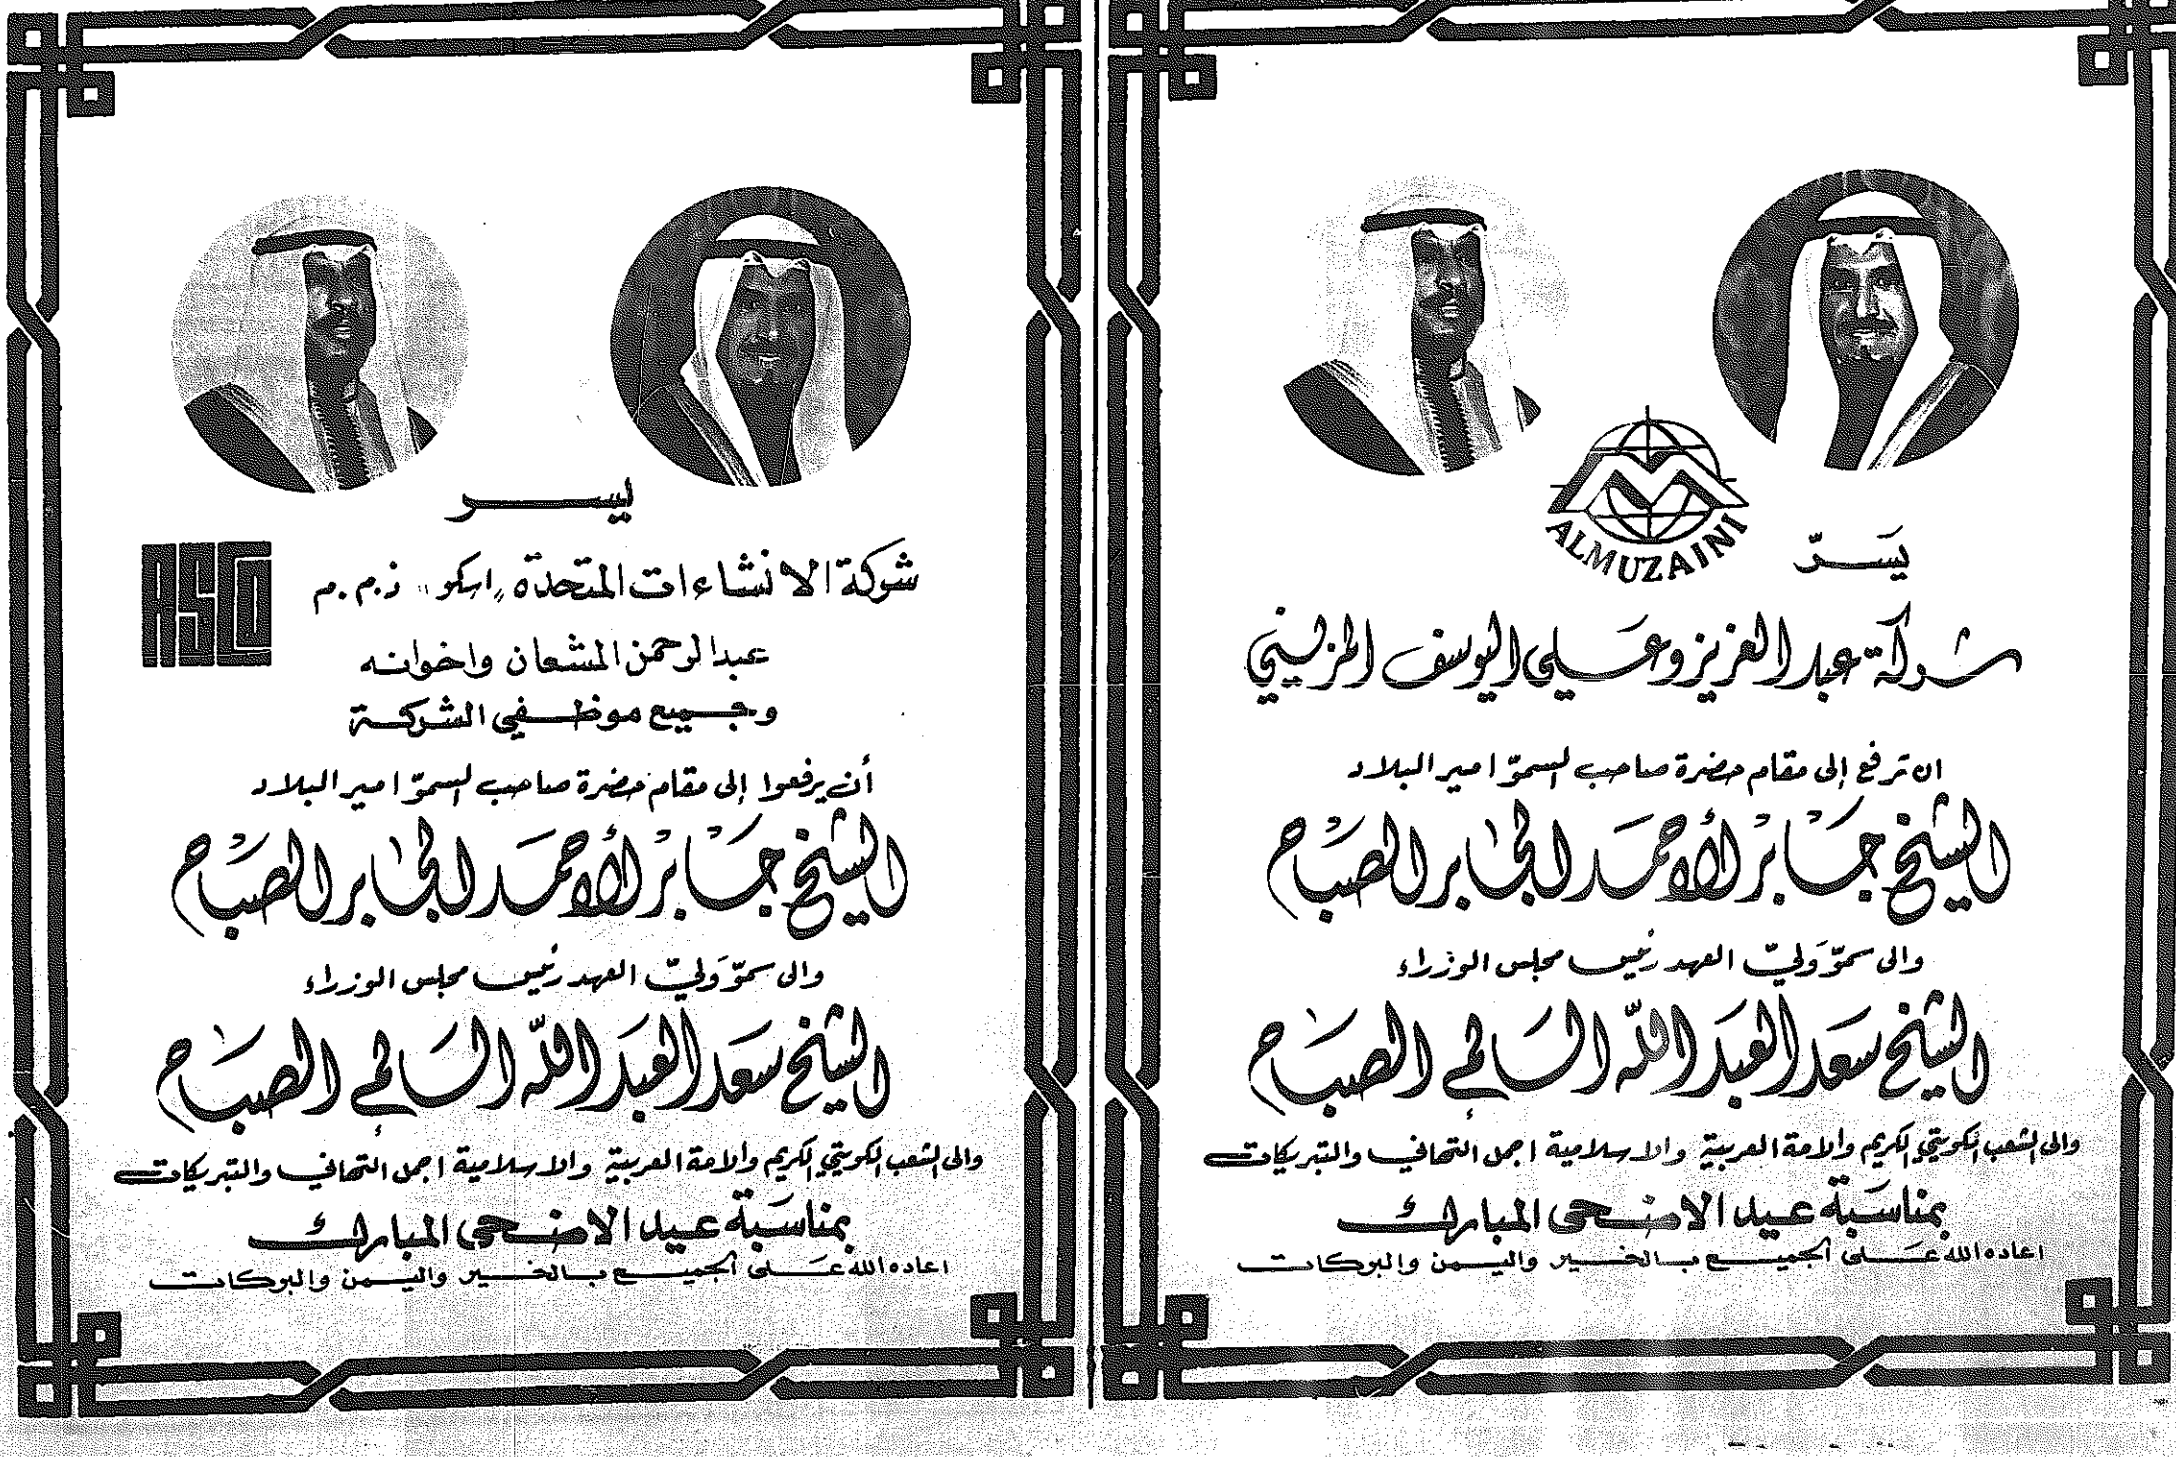 يَسرّ
ALMUZAINI
شركة عبد العزيز وعلي اليوسف المزيني
ان ترفع إلى مقام حضرة صاحب السموّ امير البلاد
الشيخ جابر الأحمد الجابر الصباح
والى سموّ وَليّ العهد رئيس مجلس الوزراء
الشيخ سعد العبد الله السالم الصباح
والى الشعب الكويتي الكريم والامة العربية والاسلامية اجمل التهاني والتبريكات
بمناسبة عيد الاضحى المبارك
اعاده الله على الجميع بالخير واليمن والبركات
يسر
ASCO
شركة الانشاءات المتحده "اسكو" ذ.م.م
عبدالرحمن المشعان واخوانه
وجميع موظفي الشركة
أن يرفعوا إلى مقام حضرة صاحب السموّ امير البلاد
الشيخ جابر الأحمد الجابر الصباح
والى سموّ وَليّ العهد رئيس مجلس الوزراء
الشيخ سعد العبد الله السالم الصباح
والى الشعب الكويتي الكريم والامة العربية والاسلامية اجمل التهاني والتبريكات
بمناسبة عيد الاضحى المبارك
اعاده الله على الجميع بالخير واليمن والبركات